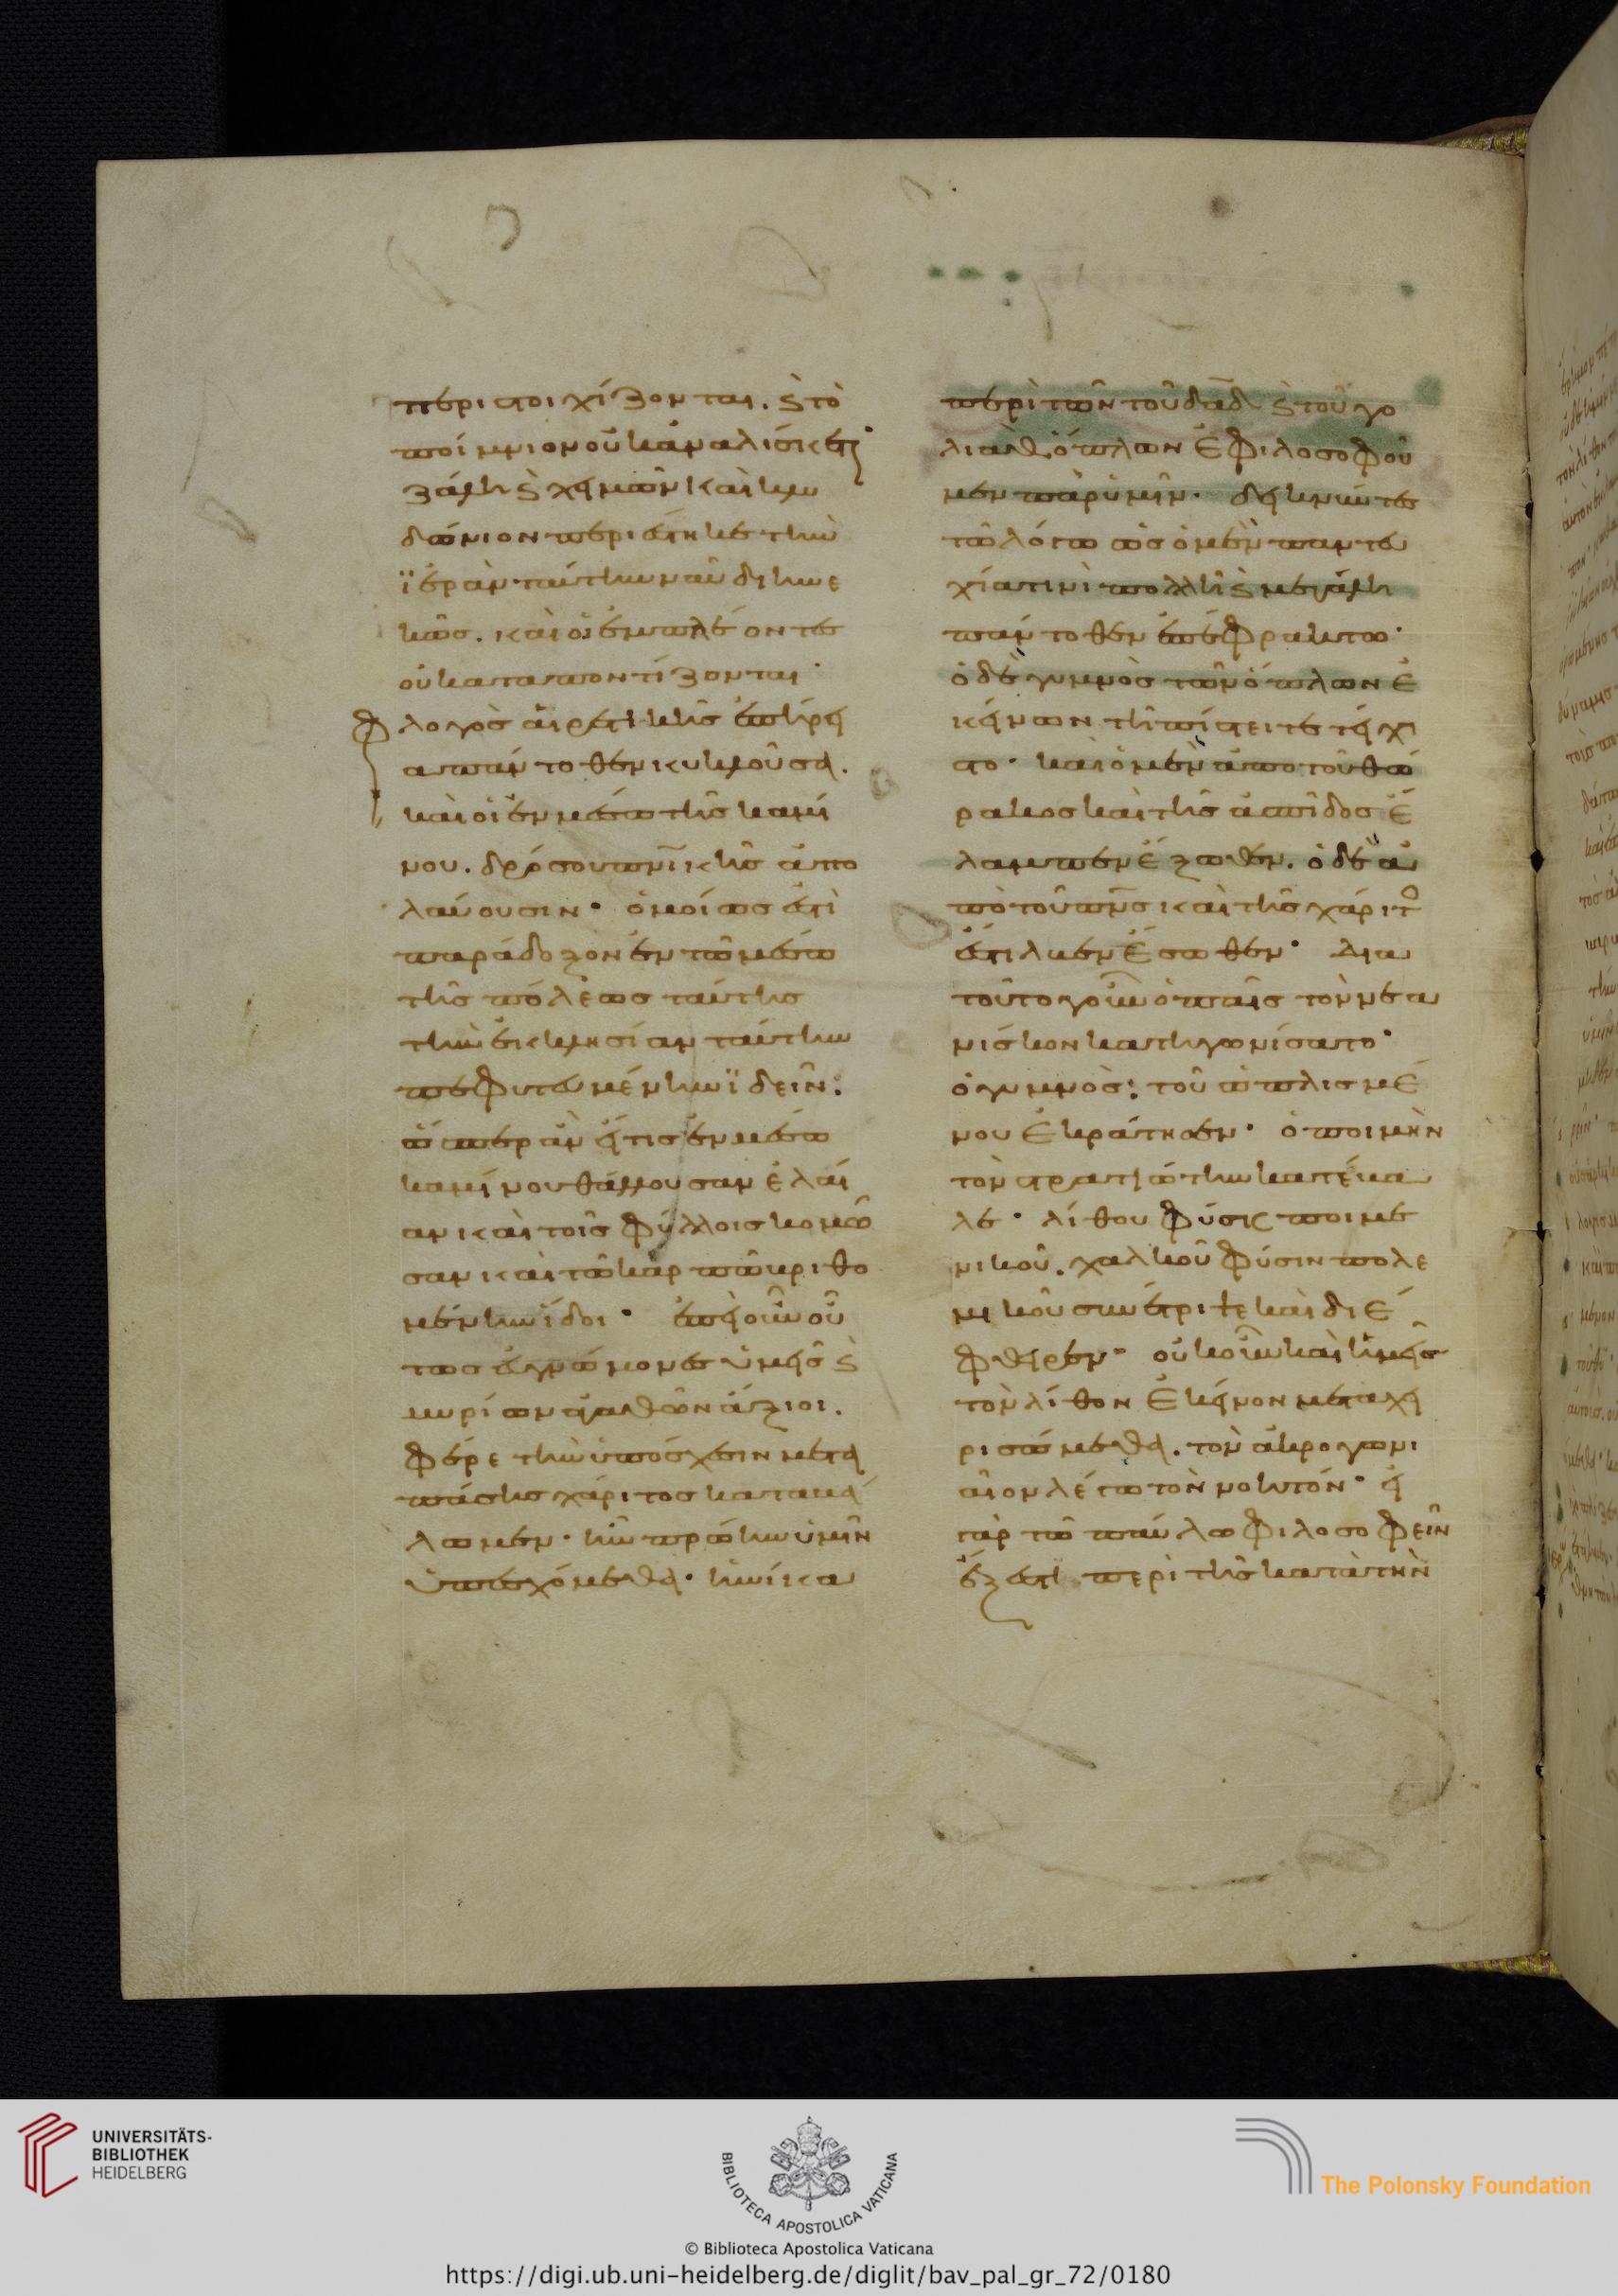 περιστοιχίζονται. ϛ τὸ
ποίμνιον οὐκ ἀναλίσκει·
ζάλη ϛ χειμὼν καὶ κλυ
δώνιον περιέστηκε τὴν
ϊερὰν ταύτην ναῦ διηνε
κῶσ. καὶ οἱ ἐμπλέοντες
οὐ καταποντίζονται·
Φλογὸσ αἱρετικῆς ἐπήρεια
ἁπανταχόθεν κυκλοῦσα.
καὶ οἱ ἐν μέσω τῆς καμί
νου. δρόσου πνικῆς ἀπο
λαύουσιν· ὁμοίωσ ἐστὶ
παράδοξον ἐν τῶ μέσω
τῆς πόλεωσ ταύτης
τὴν ἐκκλησίαν ταύτην
πεφυτευμένην ϊδεῖν:
ὥσπερ ἂν εἴ τισ ἐν μέσω
καμίνου θάλλουσαν ἐλαί
αν καὶ τοῖς φύλλοισ κομῶ
σαν καὶ τῶ καρπῶ βριθο
μένην ἴδοι· ἐπεὶ οὖν οὕ
τωσ εὐγνώμονες ὑμεῖς ϛ
μυρίων ἀγαθῶν ἄξιοι.
φέρε τὴν ὑπόσχεσιν μετὰ
πάσης χάριτος καταβά
λωμεν· ἣν πρώην ὑμῖν
ὑπεσχόμεθα· ἡνίκα
περὶ τῶν τοῦ δαδ ϛ τοῦ γο
λιὰθ ὅπλων ἐφιλοσοφοῦ
μεν παρ ὑμῖν· δεικνύντες
τῶ λόγω ὡσ ὁ μὲν παντευ
χία τινὶ πολλῆ ϛ μεγάλη
πάντοθεν ἐπέφρακτο·
ὁ δὲ γυμνὸσ τῶν ὅπλων ἐ
κείνων τῆ πίστει τετείχι
στο· καὶ ὁ μὲν ἀπὸ τοῦ θώ
ρακος καὶ τῆς ἀσπίδοσ ἔ
λαμπεν ἔξωθεν. ὁ δὲ ἀ
πὸ τοῦ πνσ καὶ τῆς χάριτο
ἔστιλβεν ἔσωθεν· Διὰ
τοῦτο γοῦν ὁ παῖς τὸν νεα
νίσκον κατηγωνίσατο·
ὁ γυμνὸσ: τοῦ ὡπλισμέ
νου ἐκράτησεν· ὁ ποιμὴν
τὸν στρατιώτην κατέβα
λε· λίθου φύσις ποιμε
νικοῦ. χαλκοῦ φύσιν πολε
μικοῦ συνέτριψε καὶ διέ
φθειρεν· οὐκοῦν καὶ ἡμεῖς
τὸν λίθον ἐκεῖνον μεταχει
ρισώμεθα. τὸν ἀκρογωνι
αῖον λέγω τὸν νοητόν· εἰ
γὰρ τῶ παύλω φιλοσοφεῖν
ἔξεστι περὶ τῆς κατὰ τὴν
UNIVERSITÄTS-
BIBLIOTHEK
HEIDELBERG
BIBLIOTECA APOSTOLICA VATICANA
© Biblioteca Apostolica Vaticana
The Polonsky Foundation
https://digi.ub.uni-heidelberg.de/diglit/bav_pal_gr_72/0180